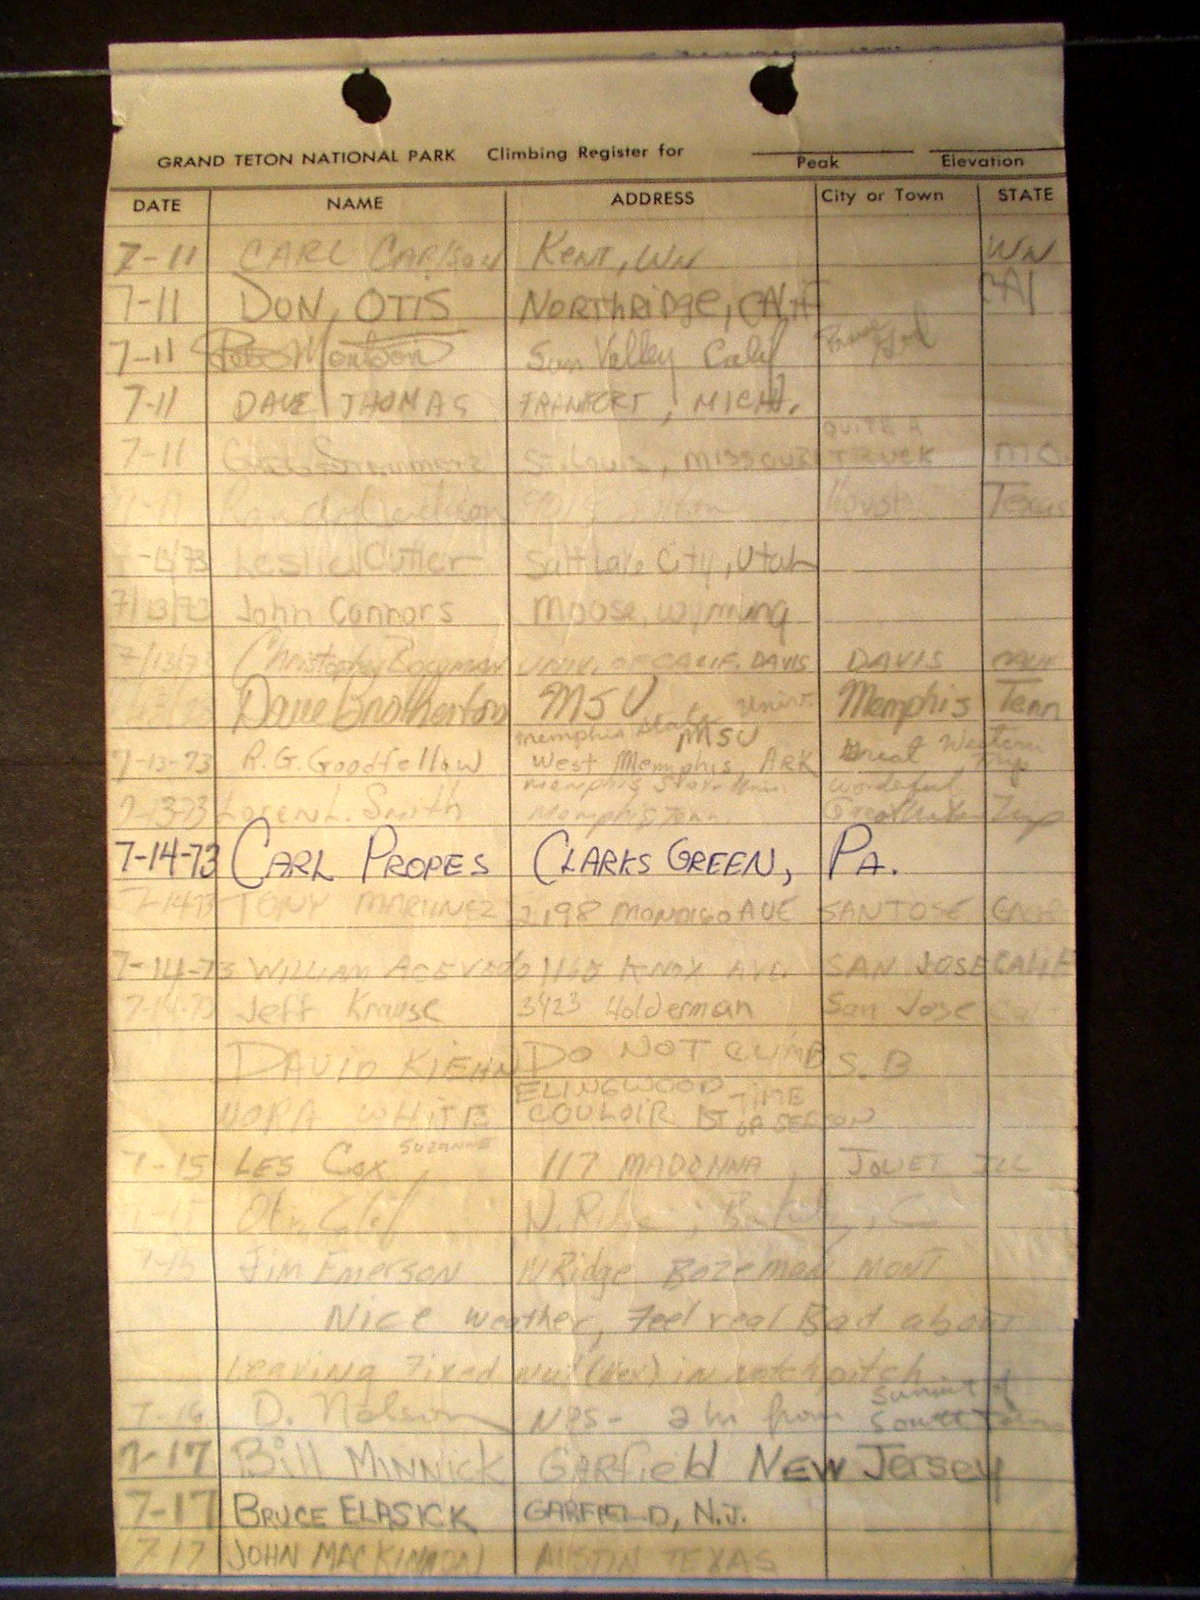 GRAND TETON NATIONAL PARK Climbing Register for
Peak Elevation
DATE NAME ADDRESS City or Town STATE
7-11 CARL Carlson Kent, Wn WN
7-11 DON OTIS NORTHRidge, CALIF CAl
7-11 Sun Valley Calif
7-11 DAVE THOMAS FRANKFORT, MICH.
QUITE A
7-11 St. Louis, MISSOURI TRUCK MO.
Texas
Leslie Cutler Salt Lake City, Utah
7/13/73 John Connors Moose, Wyming
7/13/73 Christopher Bowman UNIV. OF CALIF. DAVIS DAVIS CALIF
Dave Brotherton MSU Memphis Tenn
Memphis State Univ.
MSU
7-13-73 R.G. Goodfellow West Memphis, ARK Great Western Trip
Memphis State Univ. Wonderful
7-13-73 Loren L. Smith Memphis Tenn. Trip
7-14-73 CARL PROPES CLARKS GREEN, PA.
7-14-73 TONY MARTINEZ 2198 MONDIGO AVE SAN JOSE CALIF
7-14-73 WILLIAM ACEVEDO 1165 KNOX AVE. SAN JOSE CALIF
7-14-73 Jeff Krause 3423 Holderman San Jose Cal
DAVID KIEHN DO NOT CLIMB S.B
ELINGWOOD
WHITE COULOIR 1ST TIME OF SEASON
7-15 LES Cox, SUZANNE 117 MADONNA JOLIET ILL
7-15 N. Ridge;
7-15 Jim Emerson N Ridge Bozeman MONT
Nice weather, Feel real Bad about
Leaving Fixed nut (hex) in
7-16 D. Nelson NPS- 2 hr from Summit of South Teton
7-17 Bill MINNICK GARfield NEW Jersey
7-17 BRUCE ELASICK GARFIELD, N.J.
7-17 JOHN MACKINNON AUSTIN TEXAS